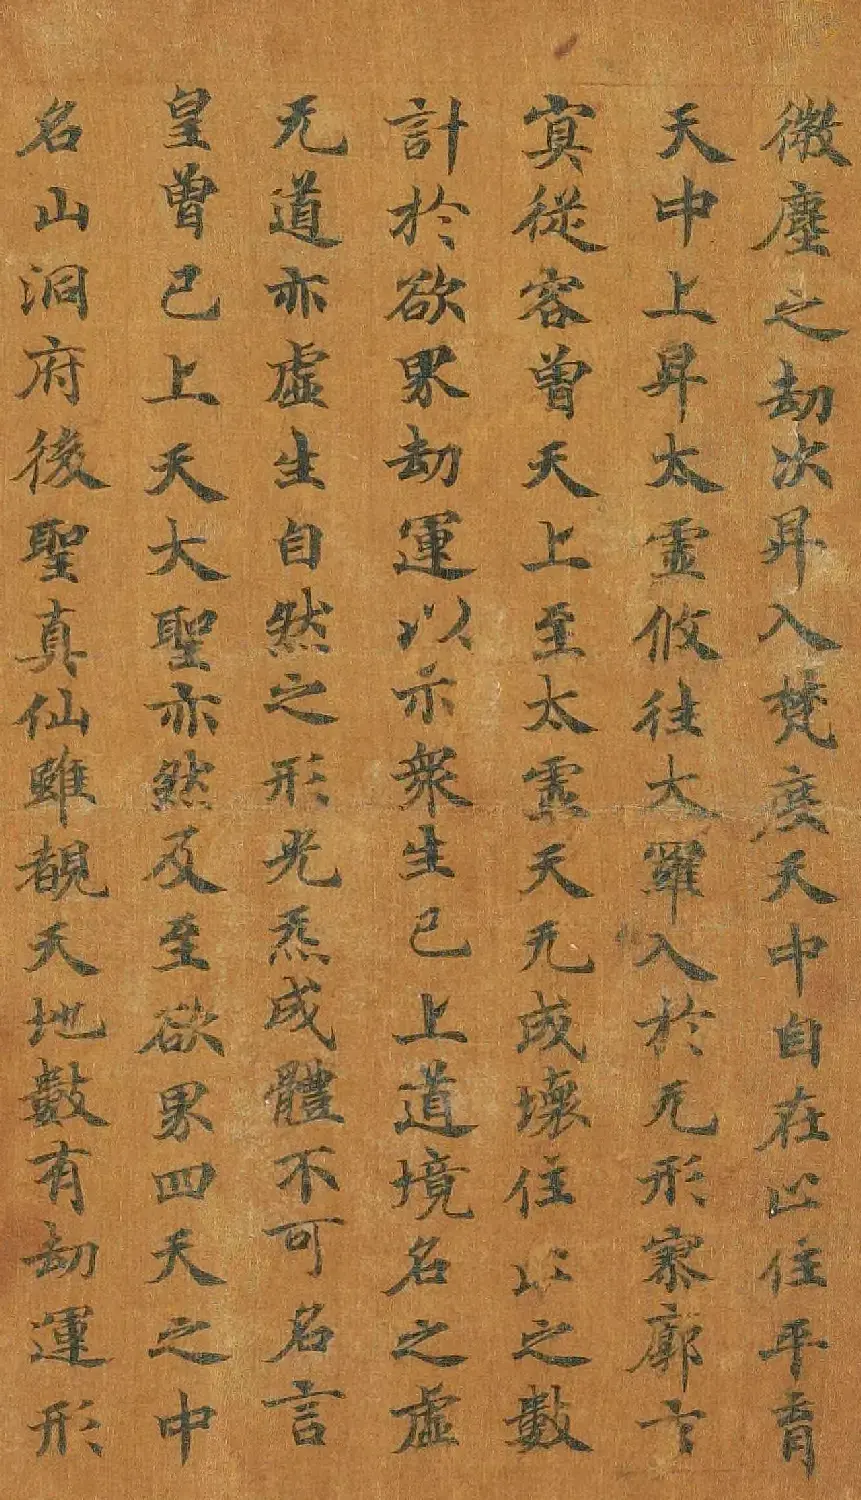 微塵之劫次昇入梵度天中自在以住平育
天中上昇太靈攸往大羅入於无形寥廓
寞從容曾天上至太靈天无成壞住以之數
計於欲界劫運以示衆生已上道境名之虛
无道亦虛生自然之形光炁成體不可名言
皇曾已上天大聖亦然及至欲界四天之中
名山洞府後聖真仙雖覩天地數有劫運形